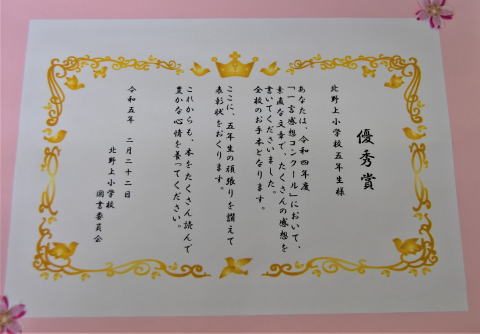 優秀賞
北野上小学校五年生様
あなたは、令和四年度
「一言感想コンクール」において、
素直な文章で、たくさんの感想を
書いてくださいました。
全校のお手本となります。
ここに、五年生の頑張りを讃えて
表彰状をおくります。
これからも、本をたくさん読んで
豊かな心情を養ってください。
令和五年 二月二十二日
北野上小学校
図書委員会